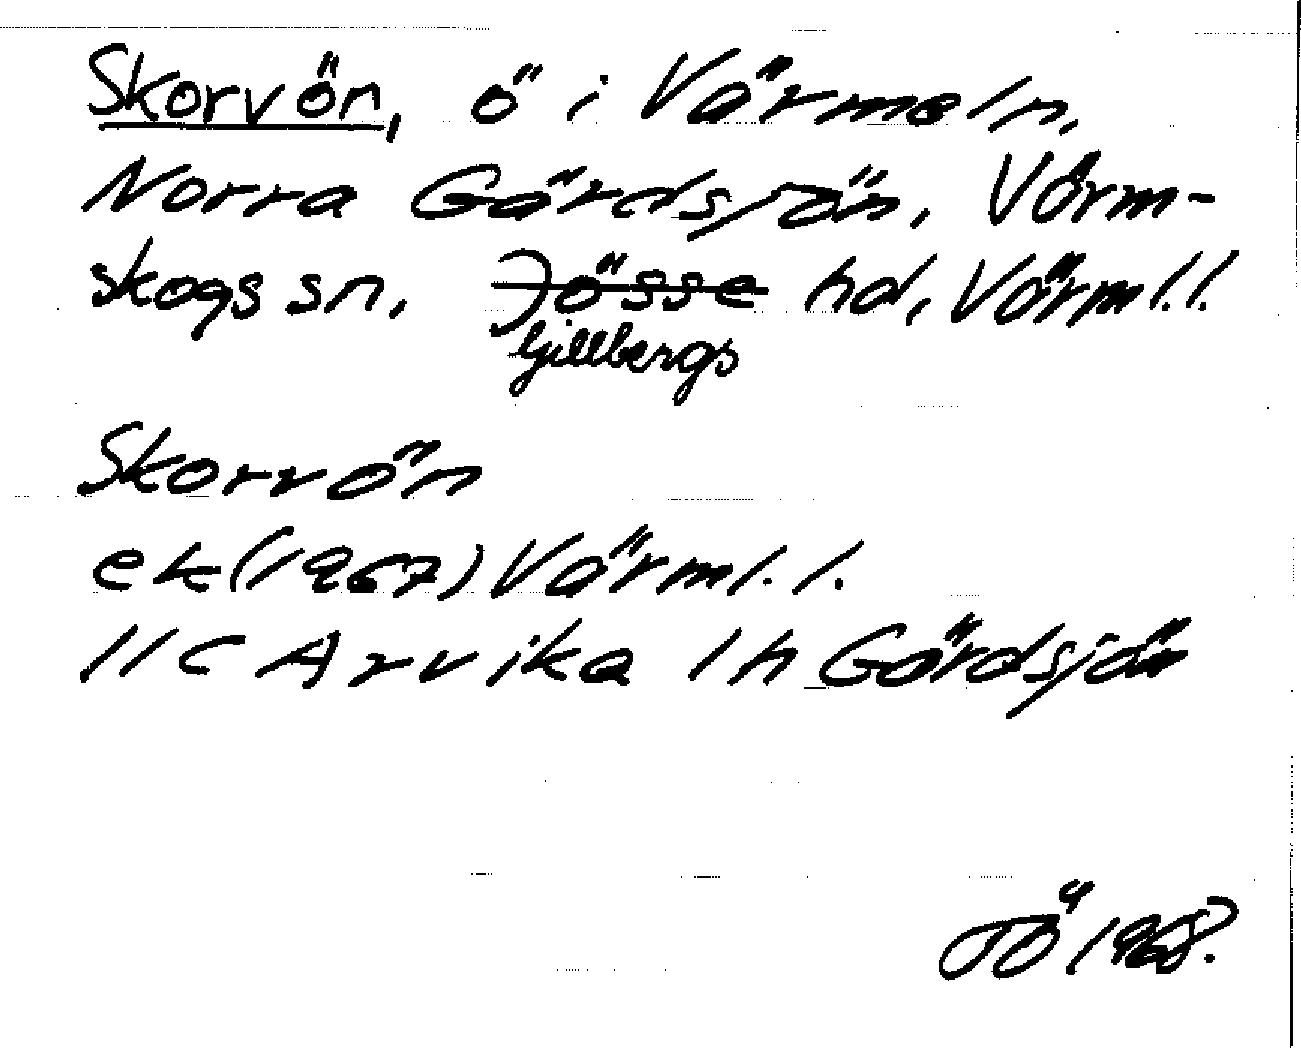 Skorvön, ö i Värmeln,
Norra Gärdsjön, Värm-
skogs sn, Jösse hd, Värml.l.
Gillbergs
Skorvön
ek(1967) Värml. l.
11C Arvika 1h Gärdsjön
OÖ 1968.